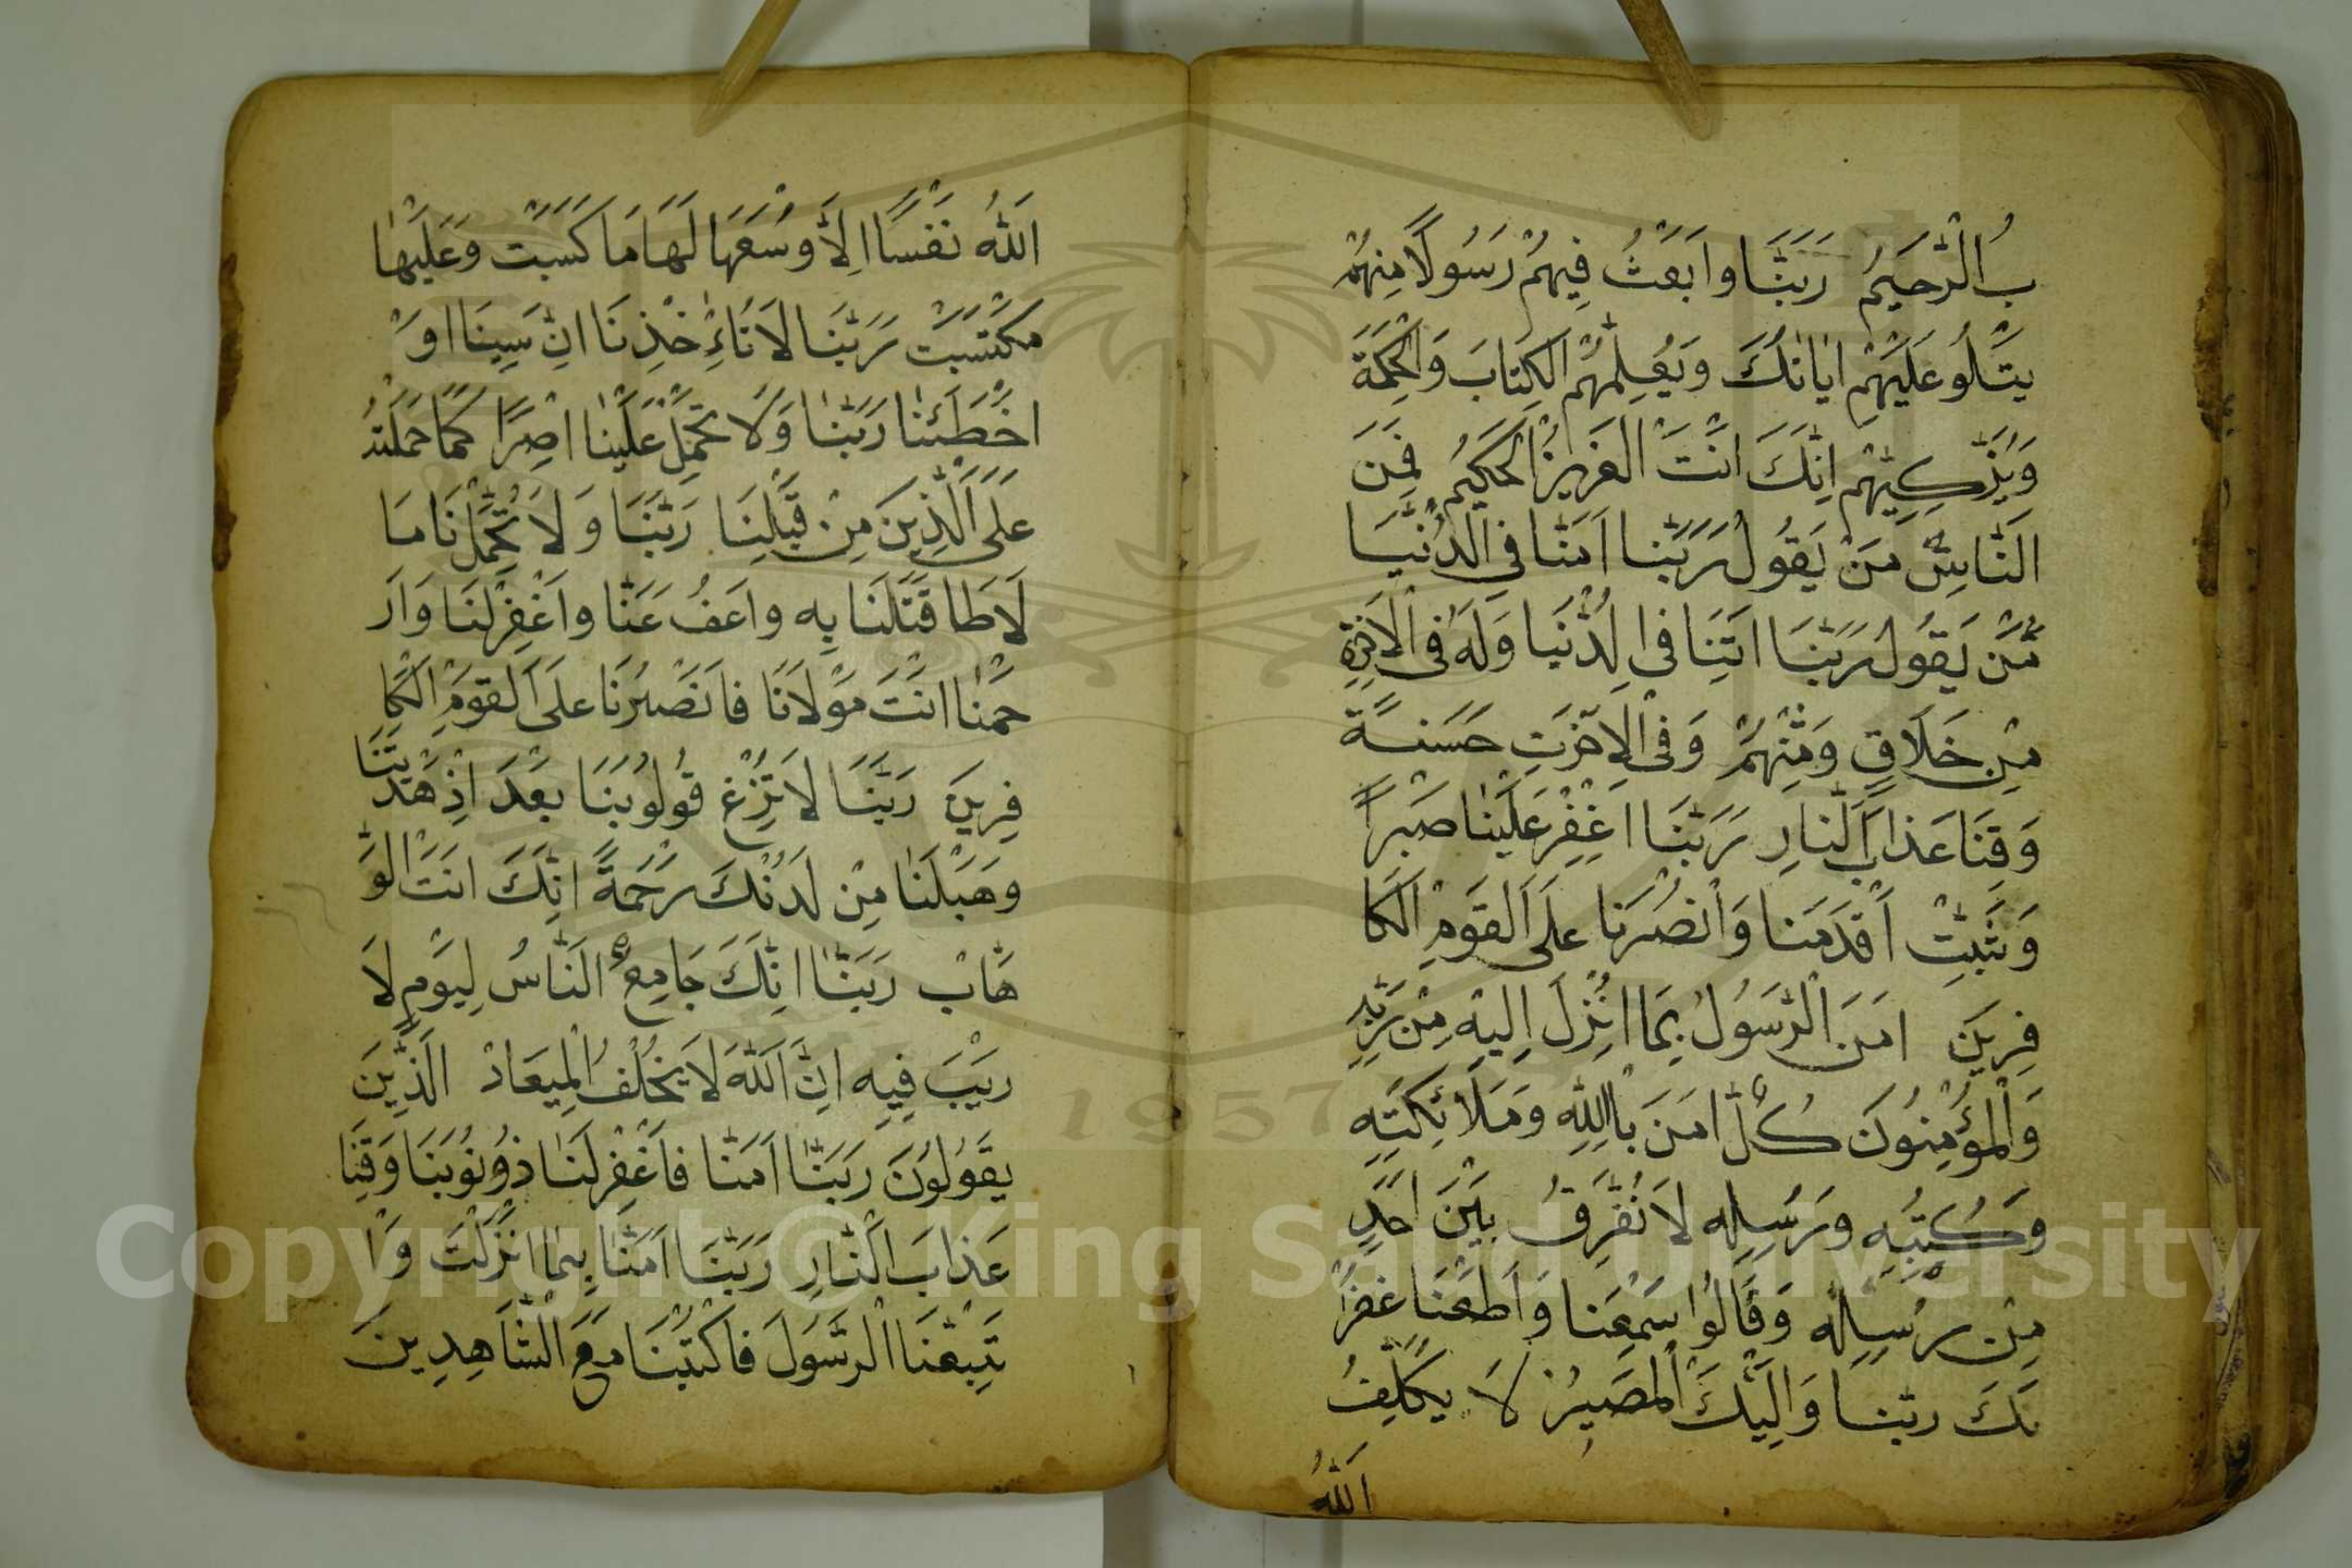 بُ الرَّحيَمُ رَبَّنَا وابَعَثْ فِيهُمْ رَسُولًا مِنهُمْ
يتْلُو عَلَيْهِمْ ايَاتكَ وَيُعَلِمهُم الكِتابَ وَالْحِكْمَةَ
وَيُزَكِيِّهْم اِنَّكَ انْتَ العَزيزُ الحَكيَمُ فَمِنَ
النَّاسِّ مَنْ يَقُولُ رَبَّنا اَمَنَّا فِي الدُنْيَا
مَّنْ يَقُولُ رَبَّنَا اَتِنَا فى الدُّنْيا وَلَهَ فى الْاَخِرَةِ
مِنْ خَلَاقٍ وَمِنْهُمْ وَفى الْاِخَرَتِ حَسَنَةً
وَقِنَا عَذابَ الَّنارِ رَبَّنَا اغِفْرْ عَلَيْنا صَبْراً
وَثَبِتّْ اَقْدَمَنا وَانْصُرَنا علَى اَلقَومِ الكَا
فِرِيَنَ امَنَ الْرَّسَوُلُ بِمَا انُزِلَ اِليهِ مِنْ رَبِّهِ
وَالْمؤُمِنُونَ كُلَّ امَنَ بْاالِلهِ وَمَلَائِكَتِهِ
وَكُتبُهِ وَرُسِلِه لَا نُفَرِقُ بيَنْ احَدٍ
مِنْ رُسِلِهِ وَقَالُوا سَمِعْنا وَاَطَعْنَا غفرا
نَكَ ربّنا وَاِلَيْكَ الْمصَيرُ لَا يُكَلِفُ
اللّٰهُ
اللّٰهُ نَفْسًا اِلَّا وسُعَهَا لَهَا مَا كَسَبَتْ وَعَلَيْها
مكتَسَبَتْ رَبَّنَا لَا تُاءَخْذِنَا انِّ سِينَا اوَ
اخْطَئنا رَبَّنا وَلَا تَحْمِلْ عَلَيْنا اصِرًا كَمَا حَمَلْتهُ
عَلَى الَّذِينَ مِنْ قَبْلِنَا رَبَّنَا وَلَا تُحَمِلْنَا مَا
لَا طَا قَتَلَنَا بِه واعَفُ عَنَّا واغْفِرْلنَا وَارَ
حَمْنا انْتَ مَوْلَانَا فانَصْرُنَا علَى اَلقَومِ الْكا
فِرِينَ رَبَّنَا لَا تِزُغْ قُولُوبَنَا بَعْدَ اذِْ هَدَيْتَنَا
وهَبْلَنا مِنْ لَدَنْكَ رَحْمَةً انِّكَ انَتْ الْوَ
هَّابْ رَبَّنا انِّكَ جَامِعُ النَّاسُ لِيَوْمٍ لَا
ريَبَ فِيهِ انِّ اللّٰهَ لَا يَخُلْفُ الْمِيعَادْ الَّذِينَ
يقَوُلوُنَ رَبَّنا اَمَنّا فاغْفِرْلَنا ذوُنوُبَنَا وَقِنَا
عَذابَ النَّارِ رَبَّنَا اَمَنّا بِما انْزَلتَ وَا
تَبِعْنَا الرَسَّوُلَ فَاكْتُبْنَا مَعَ الشَّاهِدِينَ
Copyright © King Saud University
1957